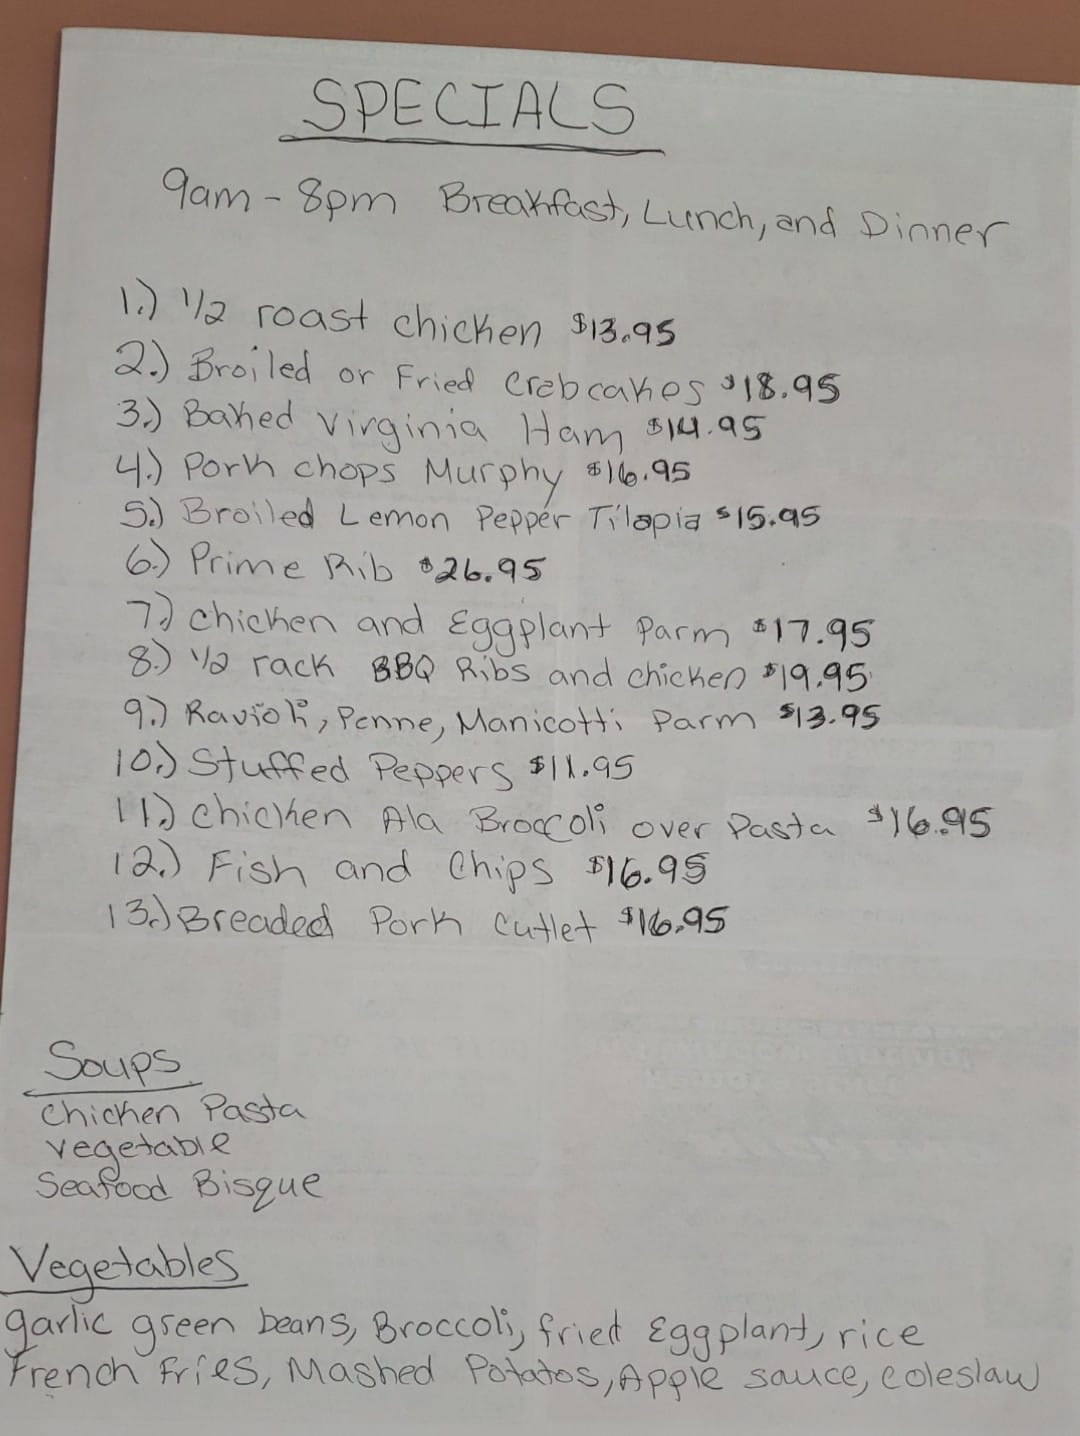 SPECIALS
9am - 8pm Breakfast, Lunch, and Dinner
1.) 1/2 roast chicken $13.95
2.) Broiled or Fried Crabcakes $18.95
3.) Baked Virginia Ham $14.95
4.) Pork chops Murphy $16.95
5.) Broiled Lemon Pepper Tilapia $15.95
6.) Prime Rib $26.95
7.) chicken and Eggplant Parm $17.95
8.) 1/2 rack BBQ Ribs and chicken $19.95
9.) Ravioli, Penne, Manicotti Parm $13.95
10.) Stuffed Peppers $11.95
11.) chicken Ala Broccoli over Pasta $16.95
12.) Fish and Chips $16.95
13.) Breaded Pork Cutlet $16.95
Soups
Chicken Pasta
vegetable
Seafood Bisque
Vegetables
garlic green beans, Broccoli, fried Eggplant, rice
French Fries, Mashed Potatos, Apple sauce, coleslaw